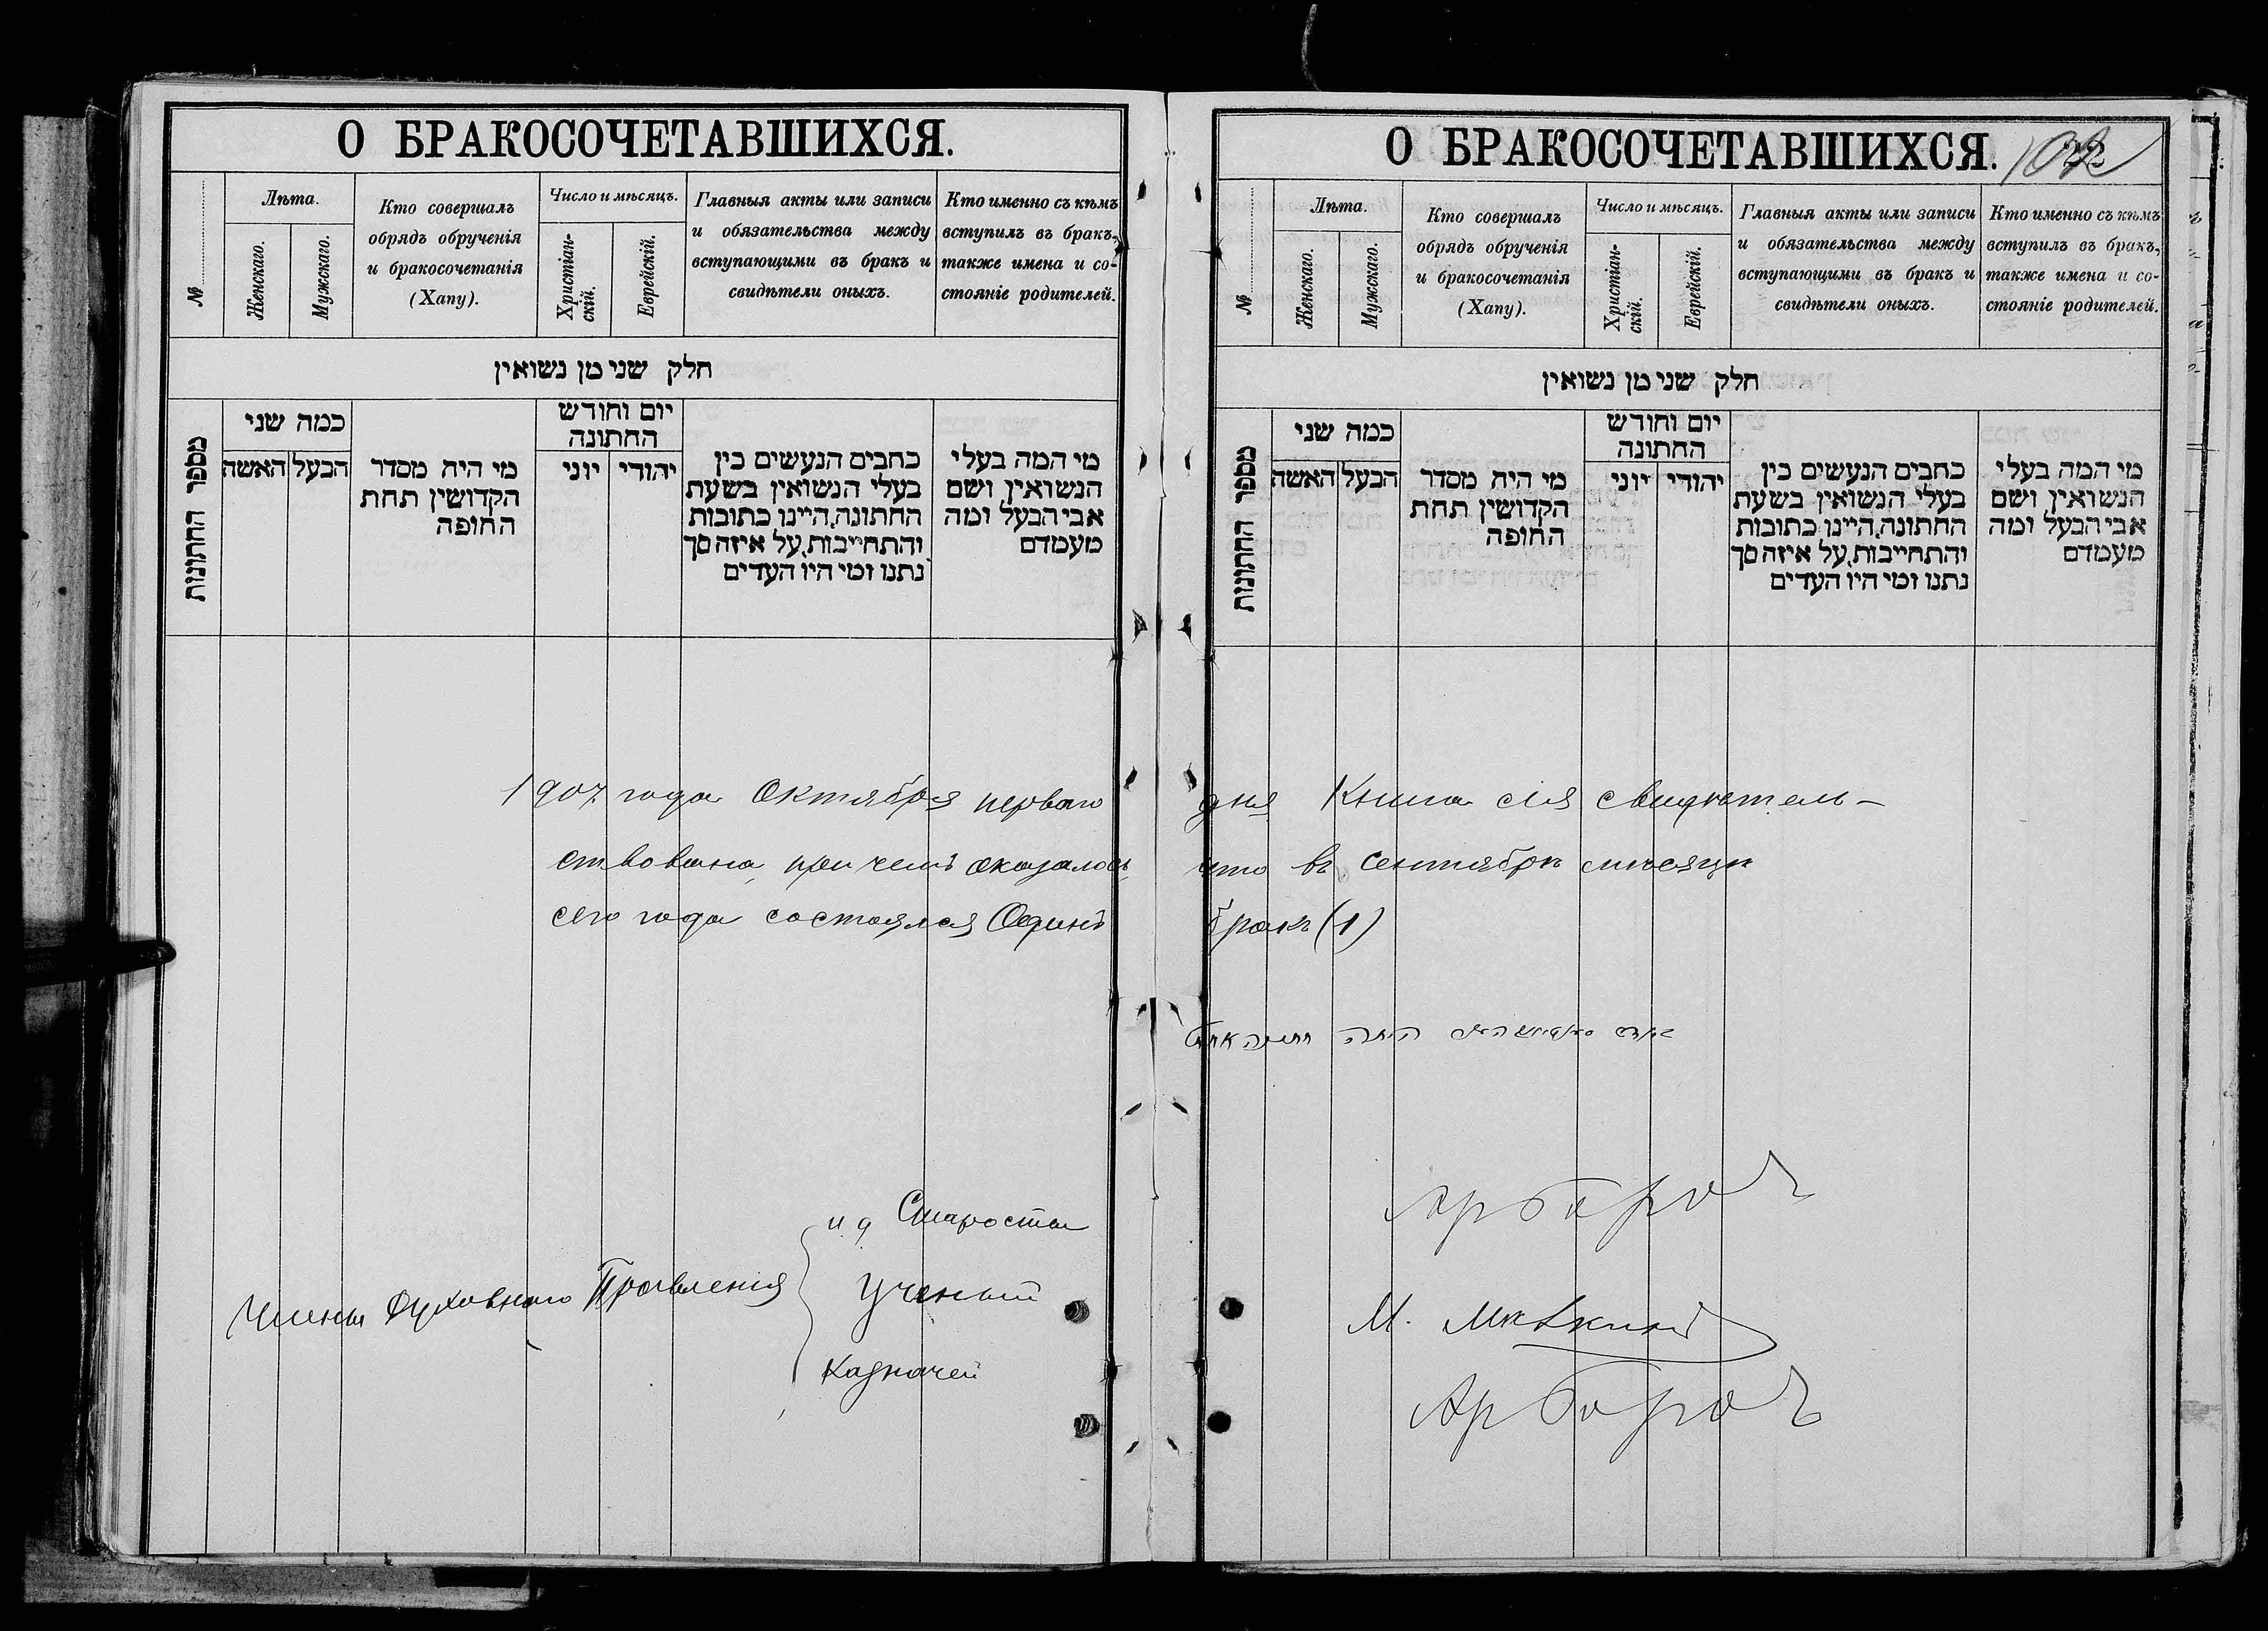 О БРАКОСОЧЕТАВШИХСЯ.
№
Лѣта.
Женскаго.
Мужскаго.
Кто совершалъ
обрядъ обрученія
и бракосочетанія
(Хапу).
Число и мѣсяцъ.
Христіан-
скій.
Еврейскій.
Главныя акты или записи
и обязательства между
вступающими въ бракъ и
свидѣтели оныхъ.
Кто именно съ кѣмъ
вступилъ въ бракъ,
также имена и со-
стояніе родителей.
חלק שני מן נשואין
מספר החתונות
כמה שני
הבעל
האשה
מי היה מסדר
הקדושין תחת
החופה
יום וחודש
החתונה
יהודי
יוני
כתבים הנעשים בין
בעלי הנשואין בשעת
החתונה, היינו כתובות
והתחייבות, על איזה סך
נתנו ומי היו העדים
מי המה בעלי
הנשואין ושם
אבי הבעל ומה
מעמדם
О БРАКОСОЧЕТАВШИХСЯ.
№
Лѣта.
Женскаго.
Мужскаго.
Кто совершалъ
обрядъ обрученія
и бракосочетанія
(Хапу).
Число и мѣсяцъ.
Христіан-
скій.
Еврейскій.
Главныя акты или записи
и обязательства между
вступающими въ бракъ и
свидѣтели оныхъ.
Кто именно съ кѣмъ
вступилъ въ бракъ,
также имена и со-
стояніе родителей.
חלק שני מן נשואין
מספר החתונות
כמה שני
הבעל
האשה
מי היה מסדר
הקדושין תחת
החופה
יום וחודש
החתונה
יהודי
יוני
כתבים הנעשים בין
בעלי הנשואין בשעת
החתונה, היינו כתובות
והתחייבות, על איזה סך
נתנו ומי היו העדים
מי המה בעלי
הנשואין ושם
אבי הבעל ומה
מעמדם
1907 года Октября перваго дня Книга сія свидѣтель-
ствована, при чемъ оказалось, что въ сентябрѣ мѣсяцѣ
сего года состоялся Одинъ бракъ (1)
היתה חתונה אחת
Члены Духовнаго Правленія
и д Староста
Ученый
Казначей
М.